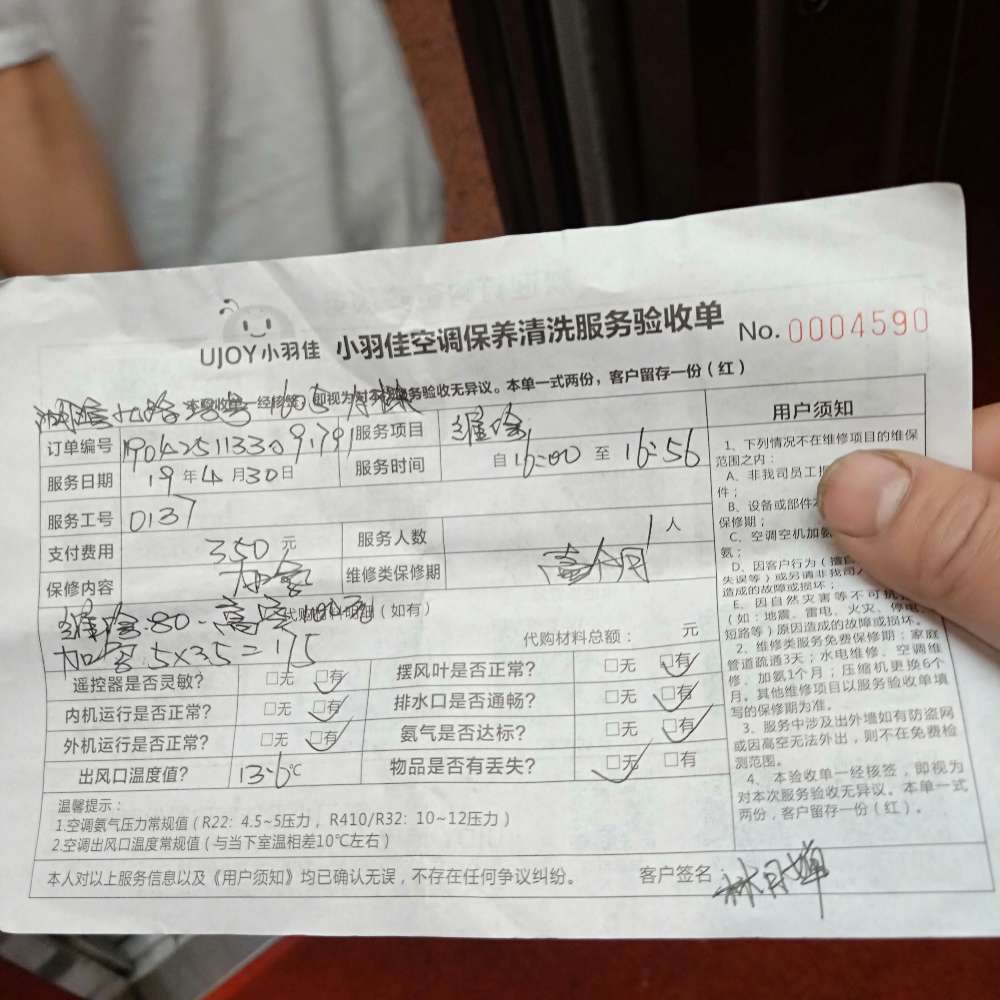 UJOY小羽佳 小羽佳空调保养清洗服务验收单 No. 0004590
本验收单一经核签，即视为对本次服务验收无异议。本单一式两份，客户留存一份（红）
订单编号 服务项目 维修
服务日期 19年4月30日 服务时间 自16:00至16:56
服务工号 0137
支付费用 350元 服务人数 1人
保修内容 维修类保修期 壹个月
代购材料明细（如有）
维修:80
5×35=175
代购材料总额： 元
遥控器是否灵敏？ □无 □有 摆风叶是否正常？ □无 □有
内机运行是否正常？ □无 □有 排水口是否通畅？ □无 □有
外机运行是否正常？ □无 □有 氨气是否达标？ □无 □有
出风口温度值？ 13.6℃ 物品是否有丢失？ □无 □有
温馨提示：
1.空调氨气压力常规值（R22：4.5~5压力，R410/R32：10~12压力）
2.空调出风口温度常规值（与当下室温相差10℃左右）
本人对以上服务信息以及《用户须知》均已确认无误，不存在任何争议纠纷。 客户签名
用户须知
1、下列情况不在维修项目的维保
范围之内：
A、非我司员工
件；
B、设备或部件
保修期；
C、空调空机加氨
氨；
D、因客户行为
失误等）或另请非我司
造成的故障或损坏；
E、因自然灾害等不可抗
（如：地震、雷电、火灾、停电、
短路等）原因造成的故障或损坏。
2、维修类服务免费保修期：家庭
管道疏通3天；水电维修、空调维
修、加氨1个月；压缩机更换6个
月。其他维修项目以服务验收单填
写的保修期为准。
3、服务中涉及出外墙如有防盗网
或因高空无法外出，则不在免费检
测范围。
4、本验收单一经核签，即视为
对本次服务验收无异议。本单一式
两份，客户留存一份（红）。